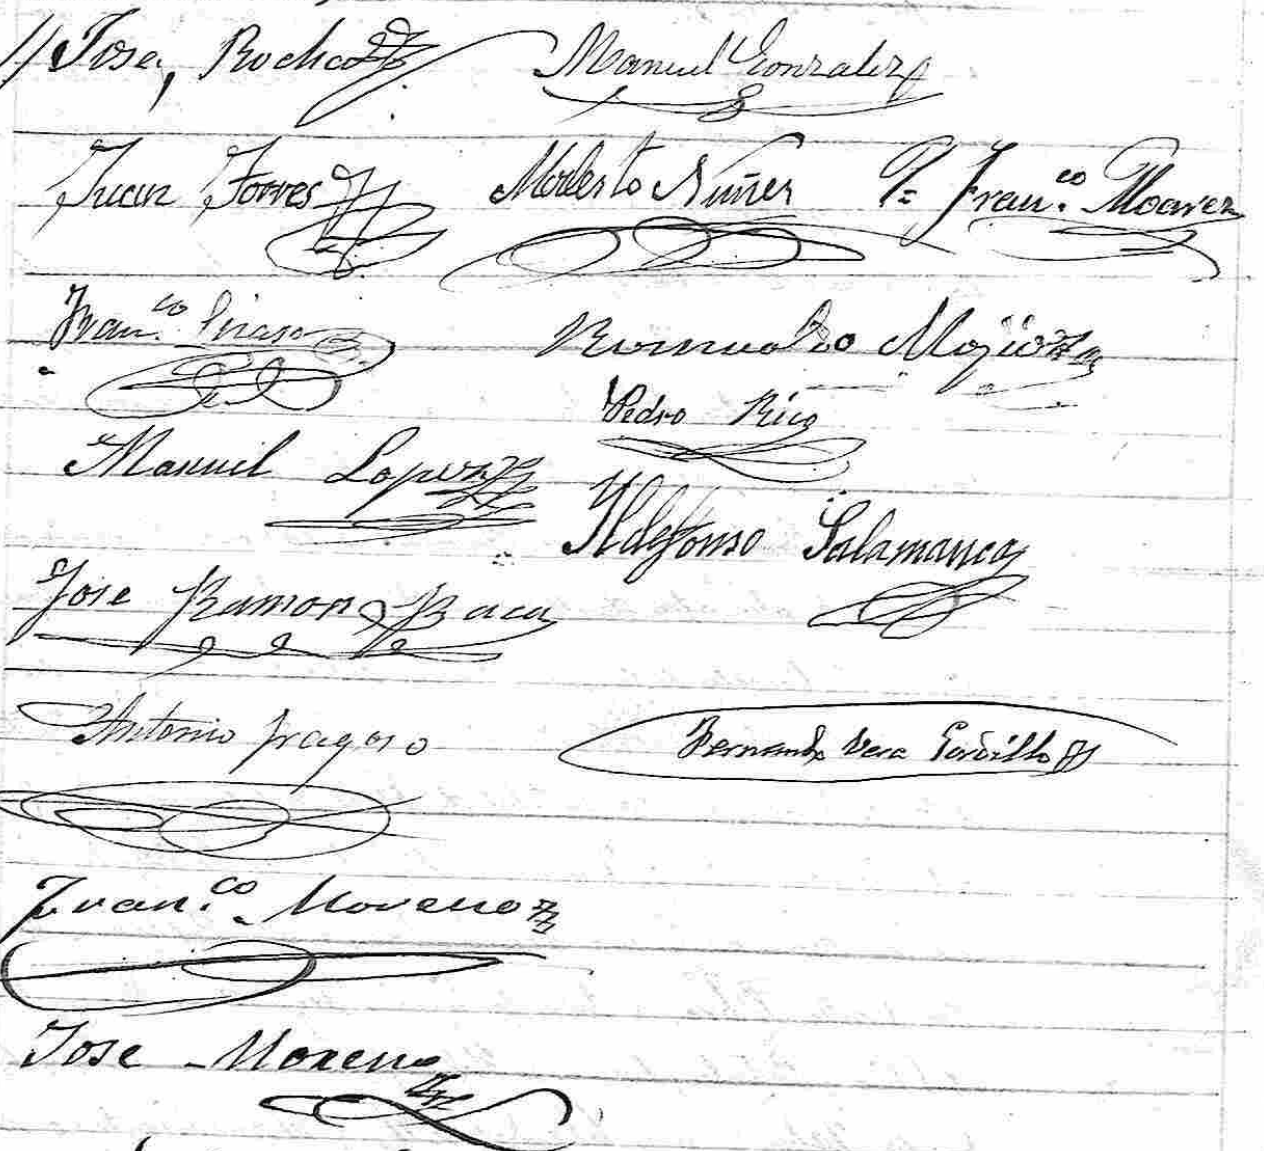 Jose, Rocha Manuel Gonzalez
Juan Torres Norberto Nuñez P.= Fran.co Alvarez
Fran.co
Romualdo
Pedro Rico
Manuel Lopez
Ildefonso Salamanca
Jose Ramon Baca
Antonio fragoso Fernando Vera Gordillo
Fran.co Moreno
Jose Moreno